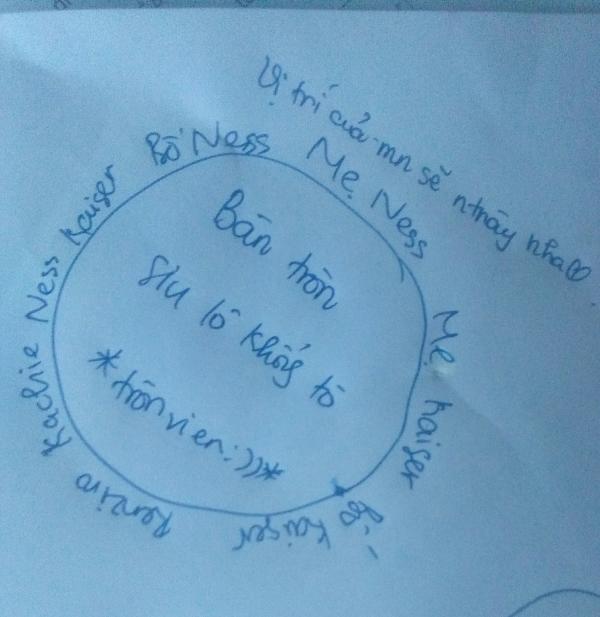 Vị trí của mn sẽ ntnày nha
Bố Ness
Mẹ Ness
Mẹ Kaiser
Bố Kaiser
Renziro
Kachiie
Ness
Kaiser
Bàn tròn
siu lô khổng tồ
*tròn vien:)))*